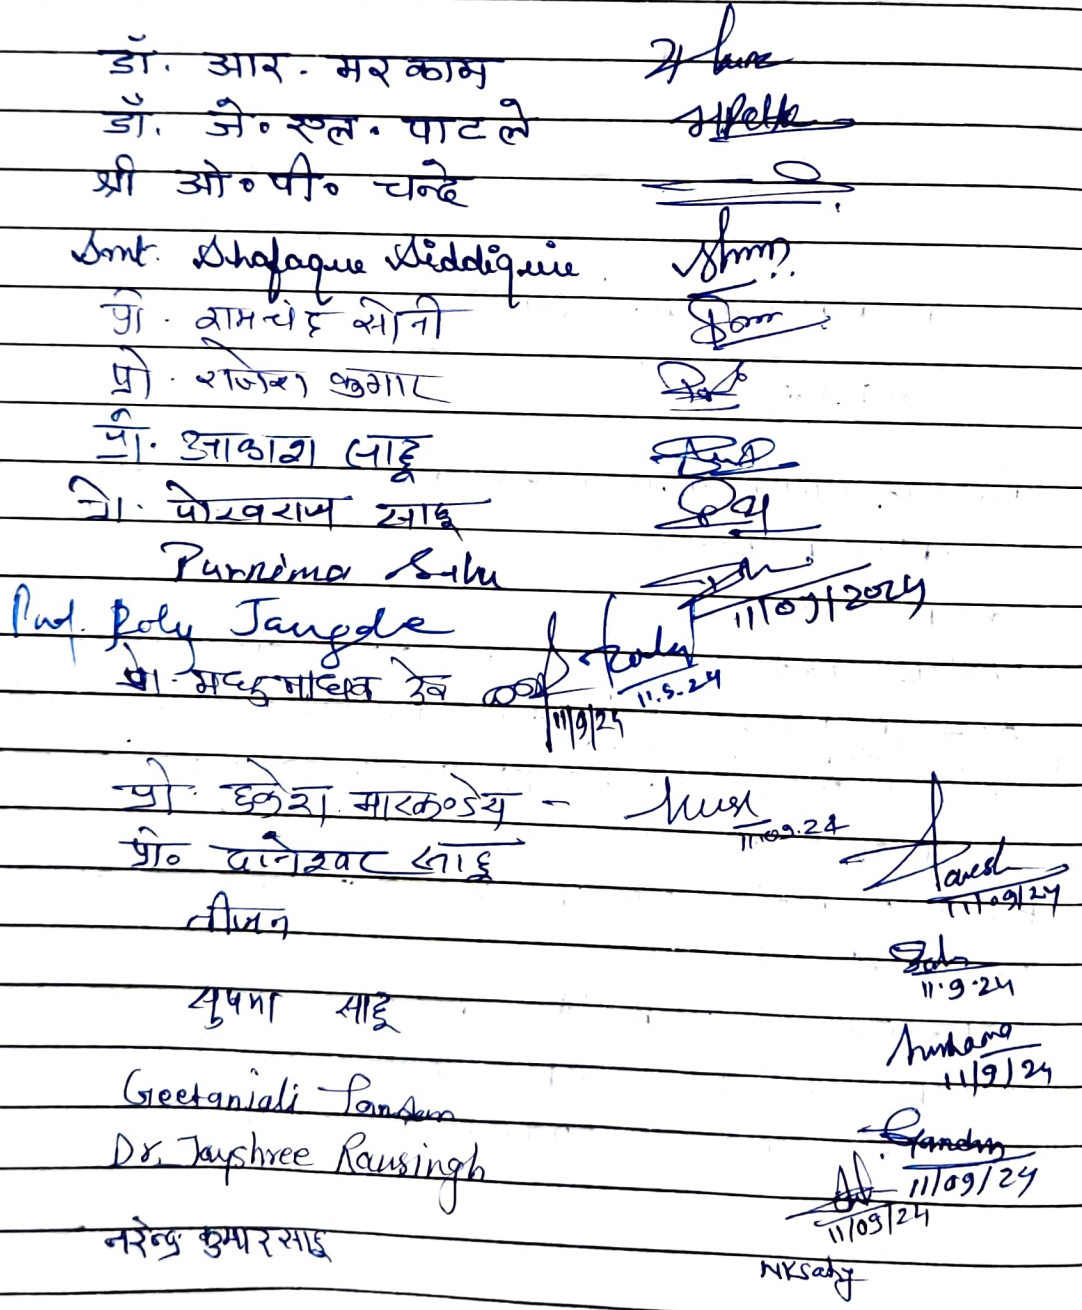 डॉ. आर. मरकाम
डॉ. जे॰ एल॰ पाटले
श्री ओ॰ पी॰ चन्द्रे
Smt. Shafaque Siddiquie
प्रो. रामचंद्र सोनी
प्रो. राजेश कुमार
प्रो. आकाश साहू
प्रो. पोखराज साहू
Purnima Sahu
11/09/2024
Prof. Roly Jangde
11.9.24
प्रो. मधुमाधव देव
11/9/24
प्रो. हकेश मारकण्डेय -
11.09.24
प्रो॰ दानेश्वर साहू
11/09/24
तीजन
11.9.24
सुषमा साहू Sushama
11/9/24
Geetanjali
11/09/24
Dr. Jayshree Rausingh
11/09/24
नरेन्द्र कुमार साहू
NKSahu